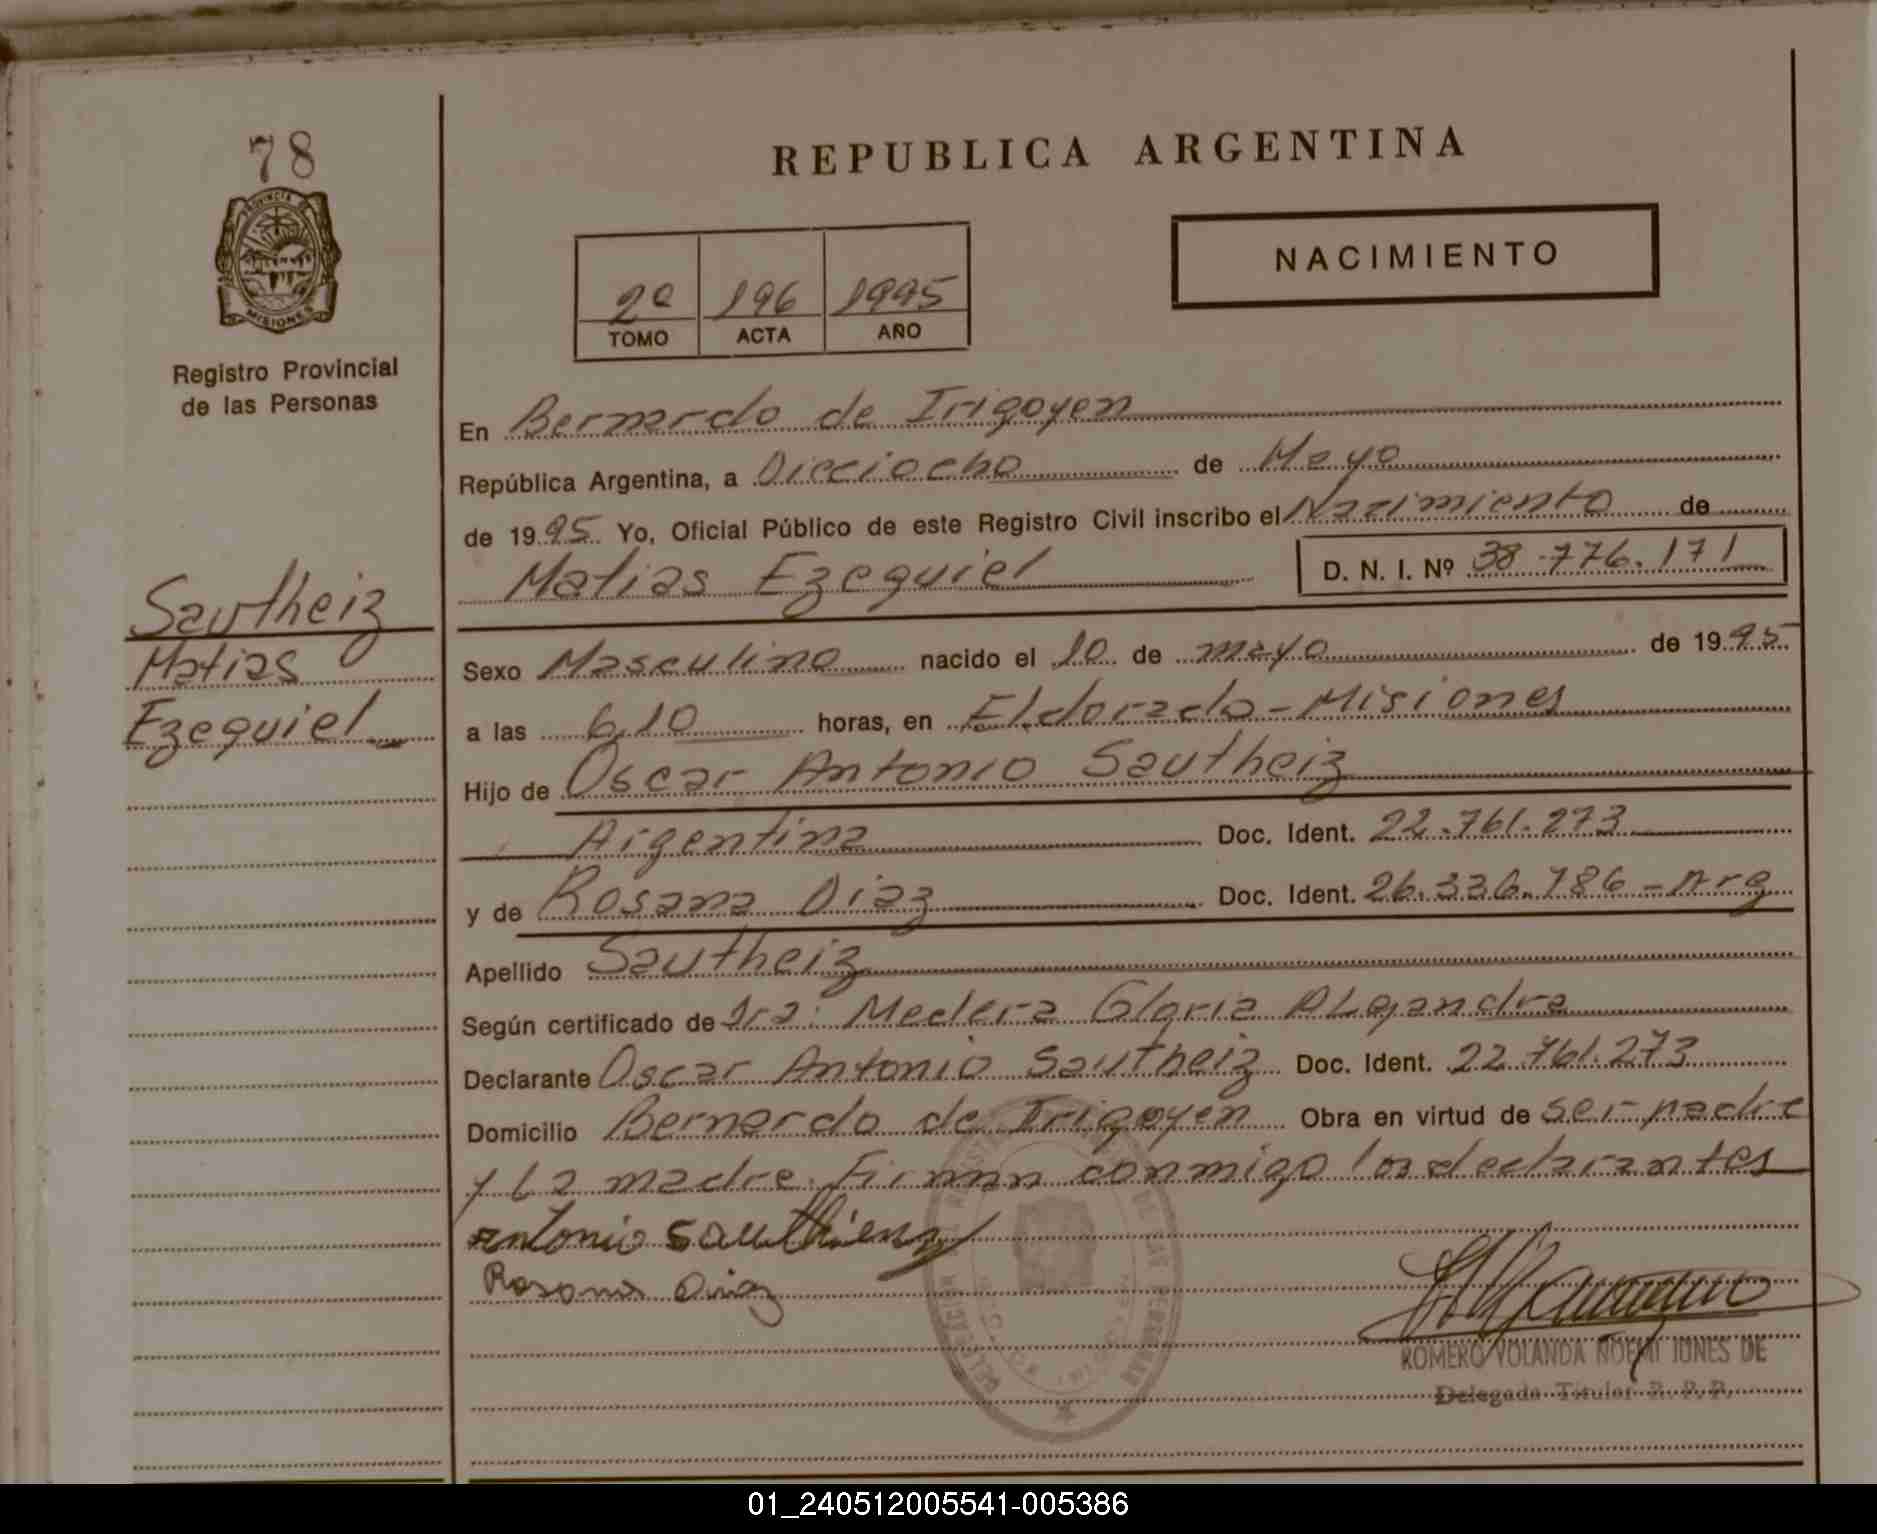 78
PROVINCIA DE
MISIONES
Registro Provincial
de las Personas
Sautheiz
Matias
Ezequiel
REPUBLICA ARGENTINA
2º 196 1995
TOMO ACTA AÑO
NACIMIENTO
En Bernardo de Irigoyen
República Argentina, a Dieciocho de Mayo
de 1995 Yo, Oficial Público de este Registro Civil inscribo el Nacimiento de
Matias Ezequiel D. N. I. Nº 38.776.171
Sexo Masculino nacido el 10 de mayo de 1995
a las 6,10 horas, en Eldorado - Misiones
Hijo de Oscar Antonio Sautheiz
Argentina Doc. Ident. 22.761.273
y de Rosana Diaz Doc. Ident. 26.336.786 - Arg
Apellido Sautheiz
Según certificado de Dra: Medera Gloria Alejandra
Declarante Oscar Antonio Sautheiz Doc. Ident. 22.761.273
Domicilio Bernardo de Irigoyen Obra en virtud de ser padre
y La madre. Firman conmigo los declarantes
Antonio Sauthienz
Rosana Diaz
ROMERO YOLANDA NOEMI IUNES DE
Delegada Titular R. P. P.
01_240512005541-005386